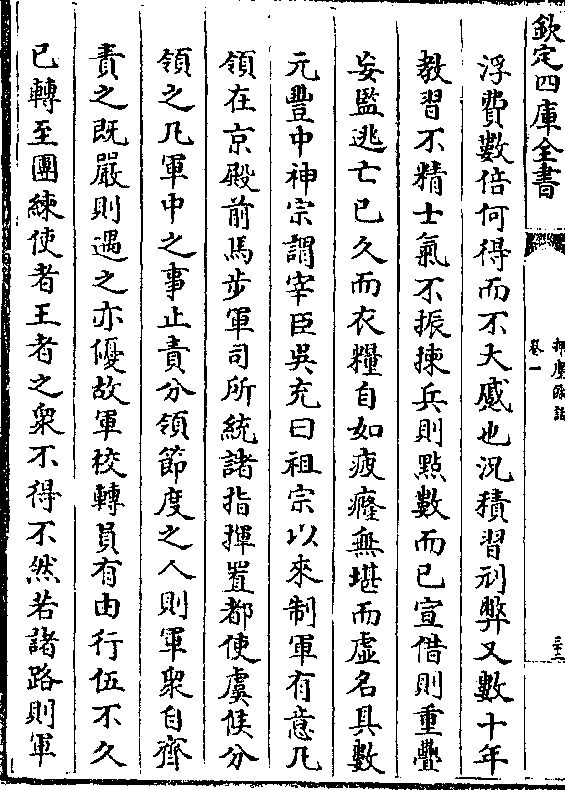 欽定四庫全書
揮麈餘話
卷一
三十二
浮費數倍何得而不大蹙也況積習利弊又數十年
教習不精士氣不振揀兵則㸃數而已宣借則重疊
妄濫逃亡已久而衣糧自如疲癃無堪而虛名具數
元豐中神宗謂宰臣吳充曰祖宗以來制軍有意凡
領在京殿前馬步軍司所統諸指揮置都使虞候分
領之凡軍中之事止責分領節度之人則軍衆自齊
責之既嚴則遇之亦優故軍校轉員有由行伍不久
已轉至團練使者王者之衆不得不然若諸路則軍